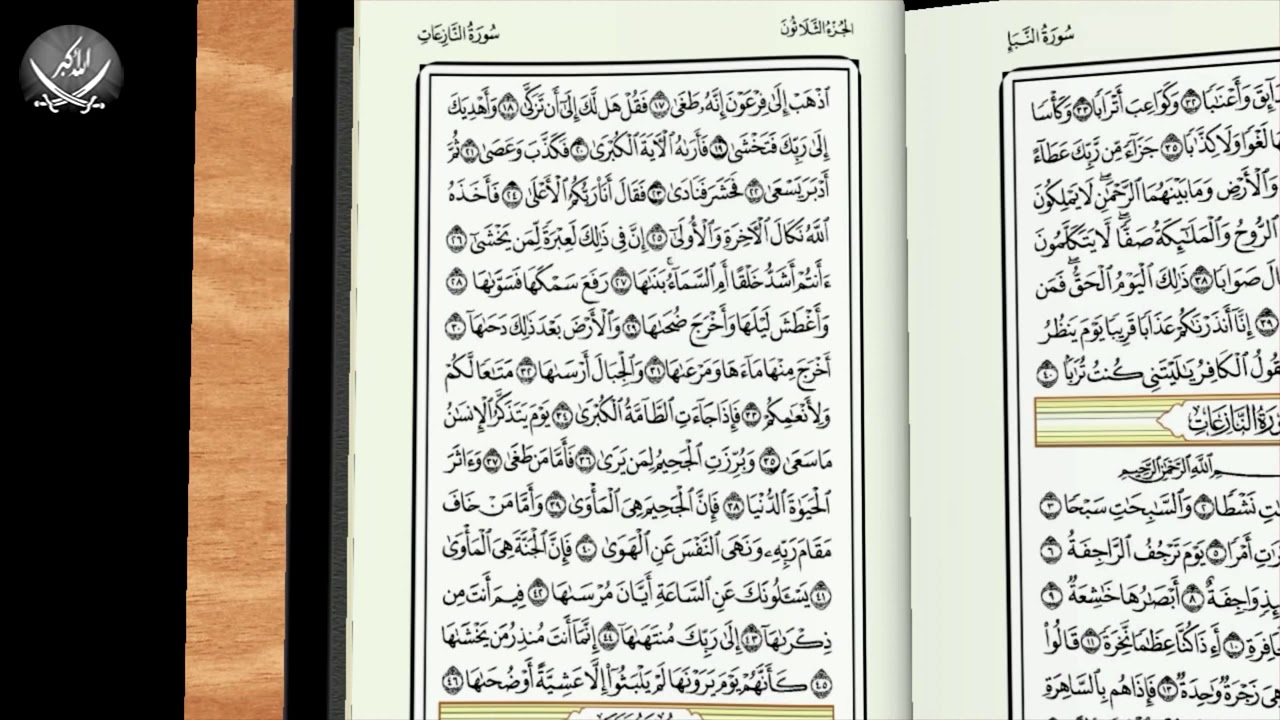 الله أكبر
سُورَةُ النَّبَإِ
ـدَائِقَ وَأَعْنَٰبًا ٣٢ وَكَوَاعِبَ أَتْرَابًا ٣٣ وَكَأْسًا
ـهَا لَغْوًا وَلَا كِذَّٰبًا ٣٥ جَزَآءً مِّن رَّبِّكَ عَطَآءً
وَٱلْأَرْضِ وَمَا بَيْنَهُمَا ٱلرَّحْمَٰنِ ۖ لَا يَمْلِكُونَ
ٱلرُّوحُ وَٱلْمَلَٰٓئِكَةُ صَفًّا ۖ لَّا يَتَكَلَّمُونَ
ـالَ صَوَابًا ٣٨ ذَٰلِكَ ٱلْيَوْمُ ٱلْحَقُّ ۖ فَمَن
٣٩ إِنَّآ أَنذَرْنَٰكُمْ عَذَابًا قَرِيبًا يَوْمَ يَنظُرُ
ـقُولُ ٱلْكَافِرُ يَٰلَيْتَنِى كُنتُ تُرَٰبًۢا ٤٠
ـورَةُ النَّازِعَاتِ
ٱللَّهِ ٱلرَّحْمَٰنِ ٱلرَّحِيمِ
ـتِ نَشْطًا ٢ وَٱلسَّٰبِحَٰتِ سَبْحًا ٣
ـرَٰتِ أَمْرًا ٥ يَوْمَ تَرْجُفُ ٱلرَّاجِفَةُ ٦
ـئِذٍ وَاجِفَةٌ ٨ أَبْصَٰرُهَا خَٰشِعَةٌ ٩
ـحَافِرَةِ ١٠ أَءِذَا كُنَّا عِظَٰمًا نَّخِرَةً ١١ قَالُوا۟
هِىَ زَجْرَةٌ وَٰحِدَةٌ ١٣ فَإِذَا هُم بِٱلسَّاهِرَةِ
الجُزْءُ الثَّلَاثُونَ
سُورَةُ النَّازِعَاتِ
ٱذْهَبْ إِلَىٰ فِرْعَوْنَ إِنَّهُۥ طَغَىٰ ١٧ فَقُلْ هَل لَّكَ إِلَىٰٓ أَن تَزَكَّىٰ ١٨ وَأَهْدِيَكَ
إِلَىٰ رَبِّكَ فَتَخْشَىٰ ١٩ فَأَرَىٰهُ ٱلْءَايَةَ ٱلْكُبْرَىٰ ٢٠ فَكَذَّبَ وَعَصَىٰ ٢١ ثُمَّ
أَدْبَرَ يَسْعَىٰ ٢٢ فَحَشَرَ فَنَادَىٰ ٢٣ فَقَالَ أَنَا۠ رَبُّكُمُ ٱلْأَعْلَىٰ ٢٤ فَأَخَذَهُ
ٱللَّهُ نَكَالَ ٱلْءَاخِرَةِ وَٱلْأُولَىٰٓ ٢٥ إِنَّ فِى ذَٰلِكَ لَعِبْرَةً لِّمَن يَخْشَىٰٓ ٢٦
ءَأَنتُمْ أَشَدُّ خَلْقًا أَمِ ٱلسَّمَآءُ ۚ بَنَىٰهَا ٢٧ رَفَعَ سَمْكَهَا فَسَوَّىٰهَا ٢٨
وَأَغْطَشَ لَيْلَهَا وَأَخْرَجَ ضُحَىٰهَا ٢٩ وَٱلْأَرْضَ بَعْدَ ذَٰلِكَ دَحَىٰهَآ ٣٠
أَخْرَجَ مِنْهَا مَآءَهَا وَمَرْعَىٰهَا ٣١ وَٱلْجِبَالَ أَرْسَىٰهَا ٣٢ مَتَٰعًا لَّكُمْ
وَلِأَنْعَٰمِكُمْ ٣٣ فَإِذَا جَآءَتِ ٱلطَّآمَّةُ ٱلْكُبْرَىٰ ٣٤ يَوْمَ يَتَذَكَّرُ ٱلْإِنسَٰنُ
مَا سَعَىٰ ٣٥ وَبُرِّزَتِ ٱلْجَحِيمُ لِمَن يَرَىٰ ٣٦ فَأَمَّا مَن طَغَىٰ ٣٧ وَءَاثَرَ
ٱلْحَيَوٰةَ ٱلدُّنْيَا ٣٨ فَإِنَّ ٱلْجَحِيمَ هِىَ ٱلْمَأْوَىٰ ٣٩ وَأَمَّا مَنْ خَافَ
مَقَامَ رَبِّهِۦ وَنَهَى ٱلنَّفْسَ عَنِ ٱلْهَوَىٰ ٤٠ فَإِنَّ ٱلْجَنَّةَ هِىَ ٱلْمَأْوَىٰ
٤١ يَسْـَٔلُونَكَ عَنِ ٱلسَّاعَةِ أَيَّانَ مُرْسَىٰهَا ٤٢ فِيمَ أَنتَ مِن
ذِكْرَىٰهَآ ٤٣ إِلَىٰ رَبِّكَ مُنتَهَىٰهَآ ٤٤ إِنَّمَآ أَنتَ مُنذِرُ مَن يَخْشَىٰهَا
٤٥ كَأَنَّهُمْ يَوْمَ يَرَوْنَهَا لَمْ يَلْبَثُوٓا۟ إِلَّا عَشِيَّةً أَوْ ضُحَىٰهَا ٤٦